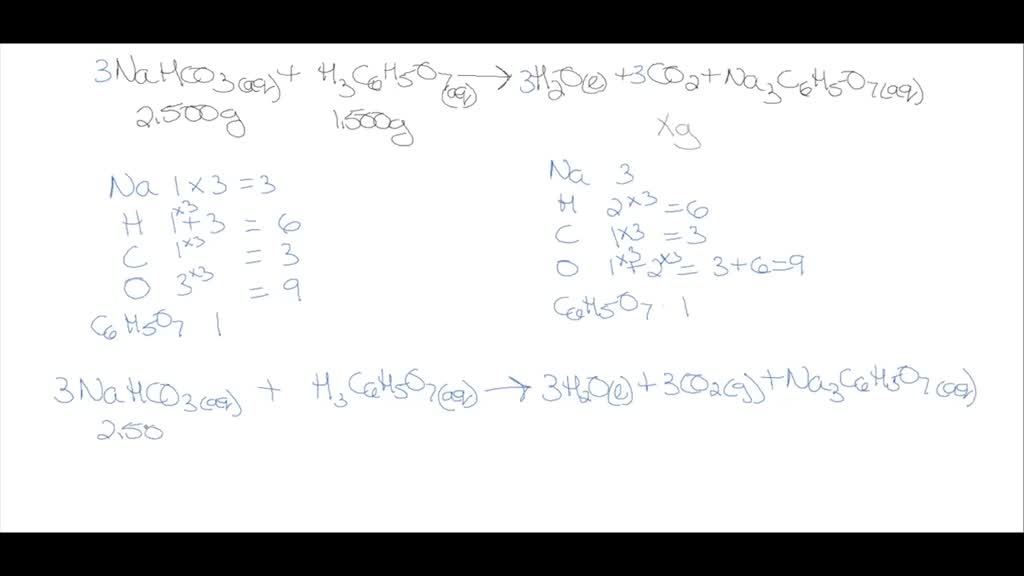 3NaHCO3(aq) + H3C6H5O7(aq) → 3H2O(l) + 3CO2 + Na3C6H5O7(aq)
2.500g 1.500g xg
Na 1 x 3 = 3
H 1 x3 + 3 = 6
C 1 x3 = 3
O 3 x3 = 9
C6H5O7 1
Na 3
H 2 x3 = 6
C 1x3 = 3
O 1 x3 + 2 x3 = 3+6=9
C6H5O7 1
3NaHCO3(aq) + H3C6H5O7(aq) → 3H2O(l) + 3CO2(g) + Na3C6H5O7(aq)
2.50